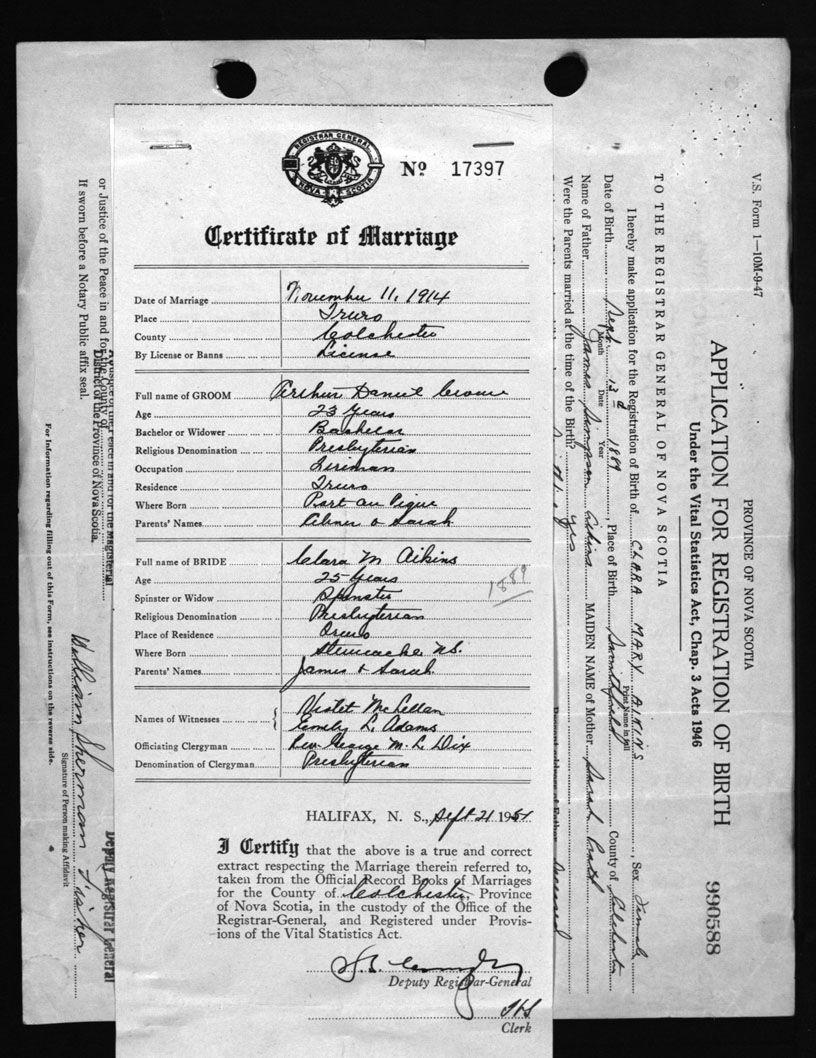 REGISTRAR GENERAL
NOVA SCOTIA
Nº 17397
Certificate of Marriage
Date of Marriage November 11, 1914
Place Truro
County Colchester
By License or Banns License
Full name of GROOM Arthur Daniel Crowe
Age 23 Years
Bachelor or Widower Bachelor
Religious Denomination Presbyterian
Occupation Fireman
Residence Truro
Where Born Port au Pique
Parents' Names Abner & Sarah
Full name of BRIDE Clara M Aikins
Age 25 Years
1889
Spinster or Widow Spinster
Religious Denomination Presbyterian
Place of Residence Truro
Where Born Stewiacke N.S.
Parents' Names James & Sarah
Names of Witnesses Violet McLellan
Emily L. Adams
Officiating Clergyman Rev George M. L Dix
Denomination of Clergyman Presbyterian
HALIFAX, N. S., Sept 21 1951
I Certify that the above is a true and correct
extract respecting the Marriage therein referred to,
taken from the Official Record Books of Marriages
for the County of Colchester, Province
of Nova Scotia, in the custody of the Office of the
Registrar-General, and Registered under Provis-
ions of the Vital Statistics Act.
Deputy Registrar-General
Clerk
V.S. Form 1—10M-9-47
PROVINCE OF NOVA SCOTIA
APPLICATION FOR REGISTRATION OF BIRTH 990588
Under the Vital Statistics Act, Chap. 3 Acts 1946
TO THE REGISTRAR GENERAL OF NOVA SCOTIA
I hereby make application for the Registration of Birth of CLARA MARY AIKINS, Sex Female
Print Name in full
Date of Birth Sept. 13 1889, Place of Birth Smithfield County of Colchester
Month Date Year
Name of Father James Simpson Aikins MAIDEN NAME of Mother Sarah
Were the Parents married at the time of the Birth? Yes
Deceased
or Justice of the Peace in and for the County of
District of the Province of Nova Scotia.
If sworn before a Notary Public affix seal.
Deputy Registrar General
William Sherman Fisher
Signature of Person making Affidavit
For Information regarding filling out of this Form, see instructions on the reverse side.